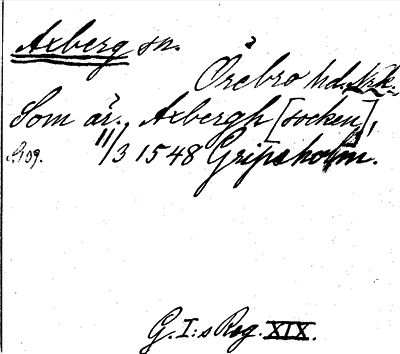 Axberg sn.
Örebro hd. Nrk.
Som är. Axbergh [socken],
11/3 1548 Gripsholm.
G. I:s Reg. XIX.